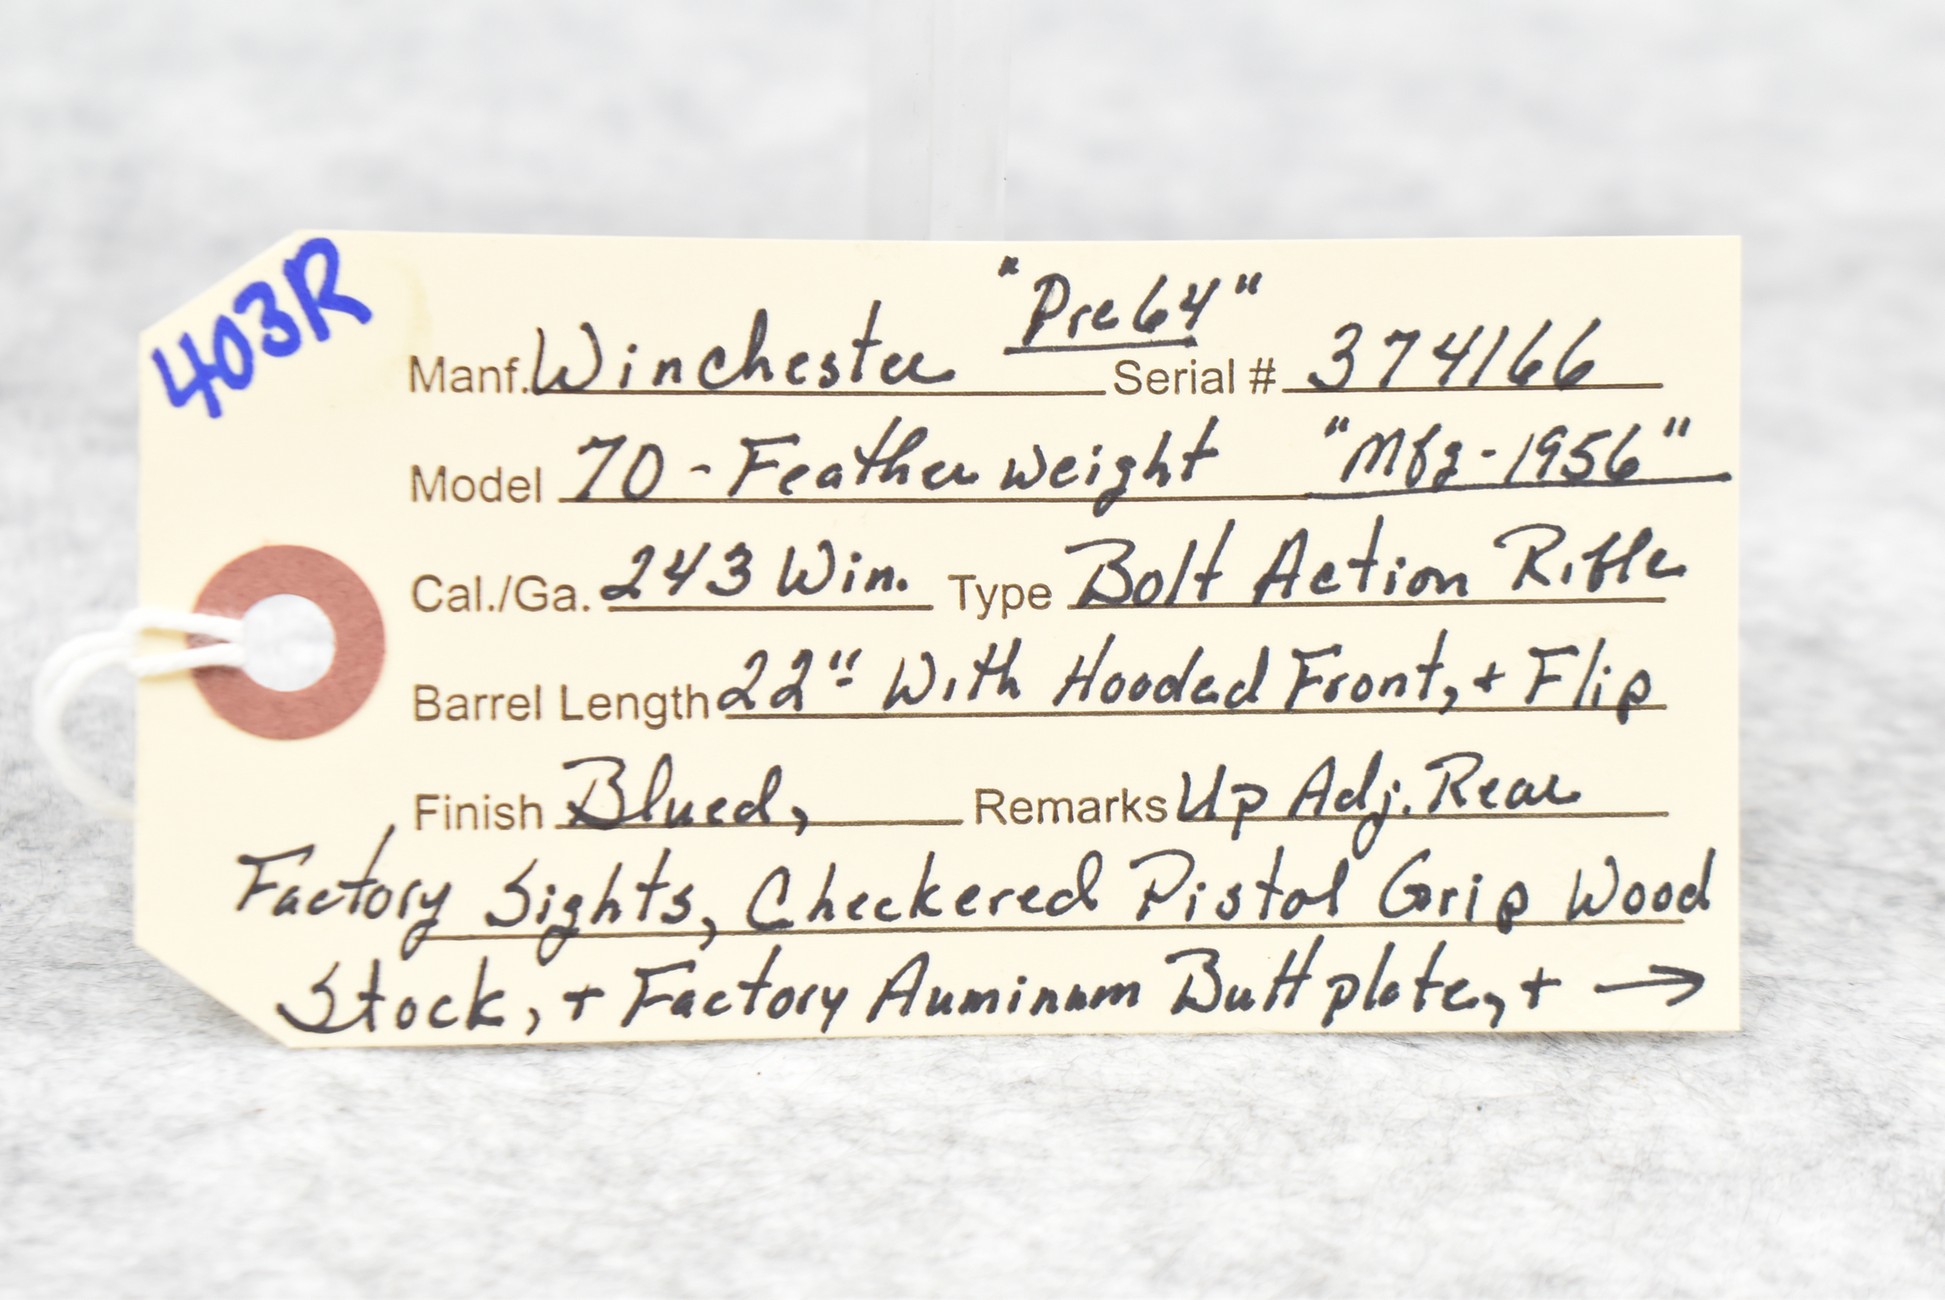 403R
"Pre 64"
Manf. Winchester Serial # 374166
Model 70 - Featherweight "Mfg - 1956"
Cal./Ga. 243 Win. Type Bolt Action Rifle
Barrel Length 22" With Hooded Front, + Flip
Finish Blued, Remarks Up Adj. Rear
Factory Sights, Checkered Pistol Grip Wood
Stock, + Factory Auminum Buttplate, + →